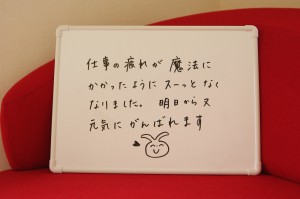 仕事の疲れが 魔法に
かかったように スーっとなく
なりました。 明日から又
元気にがんばれます